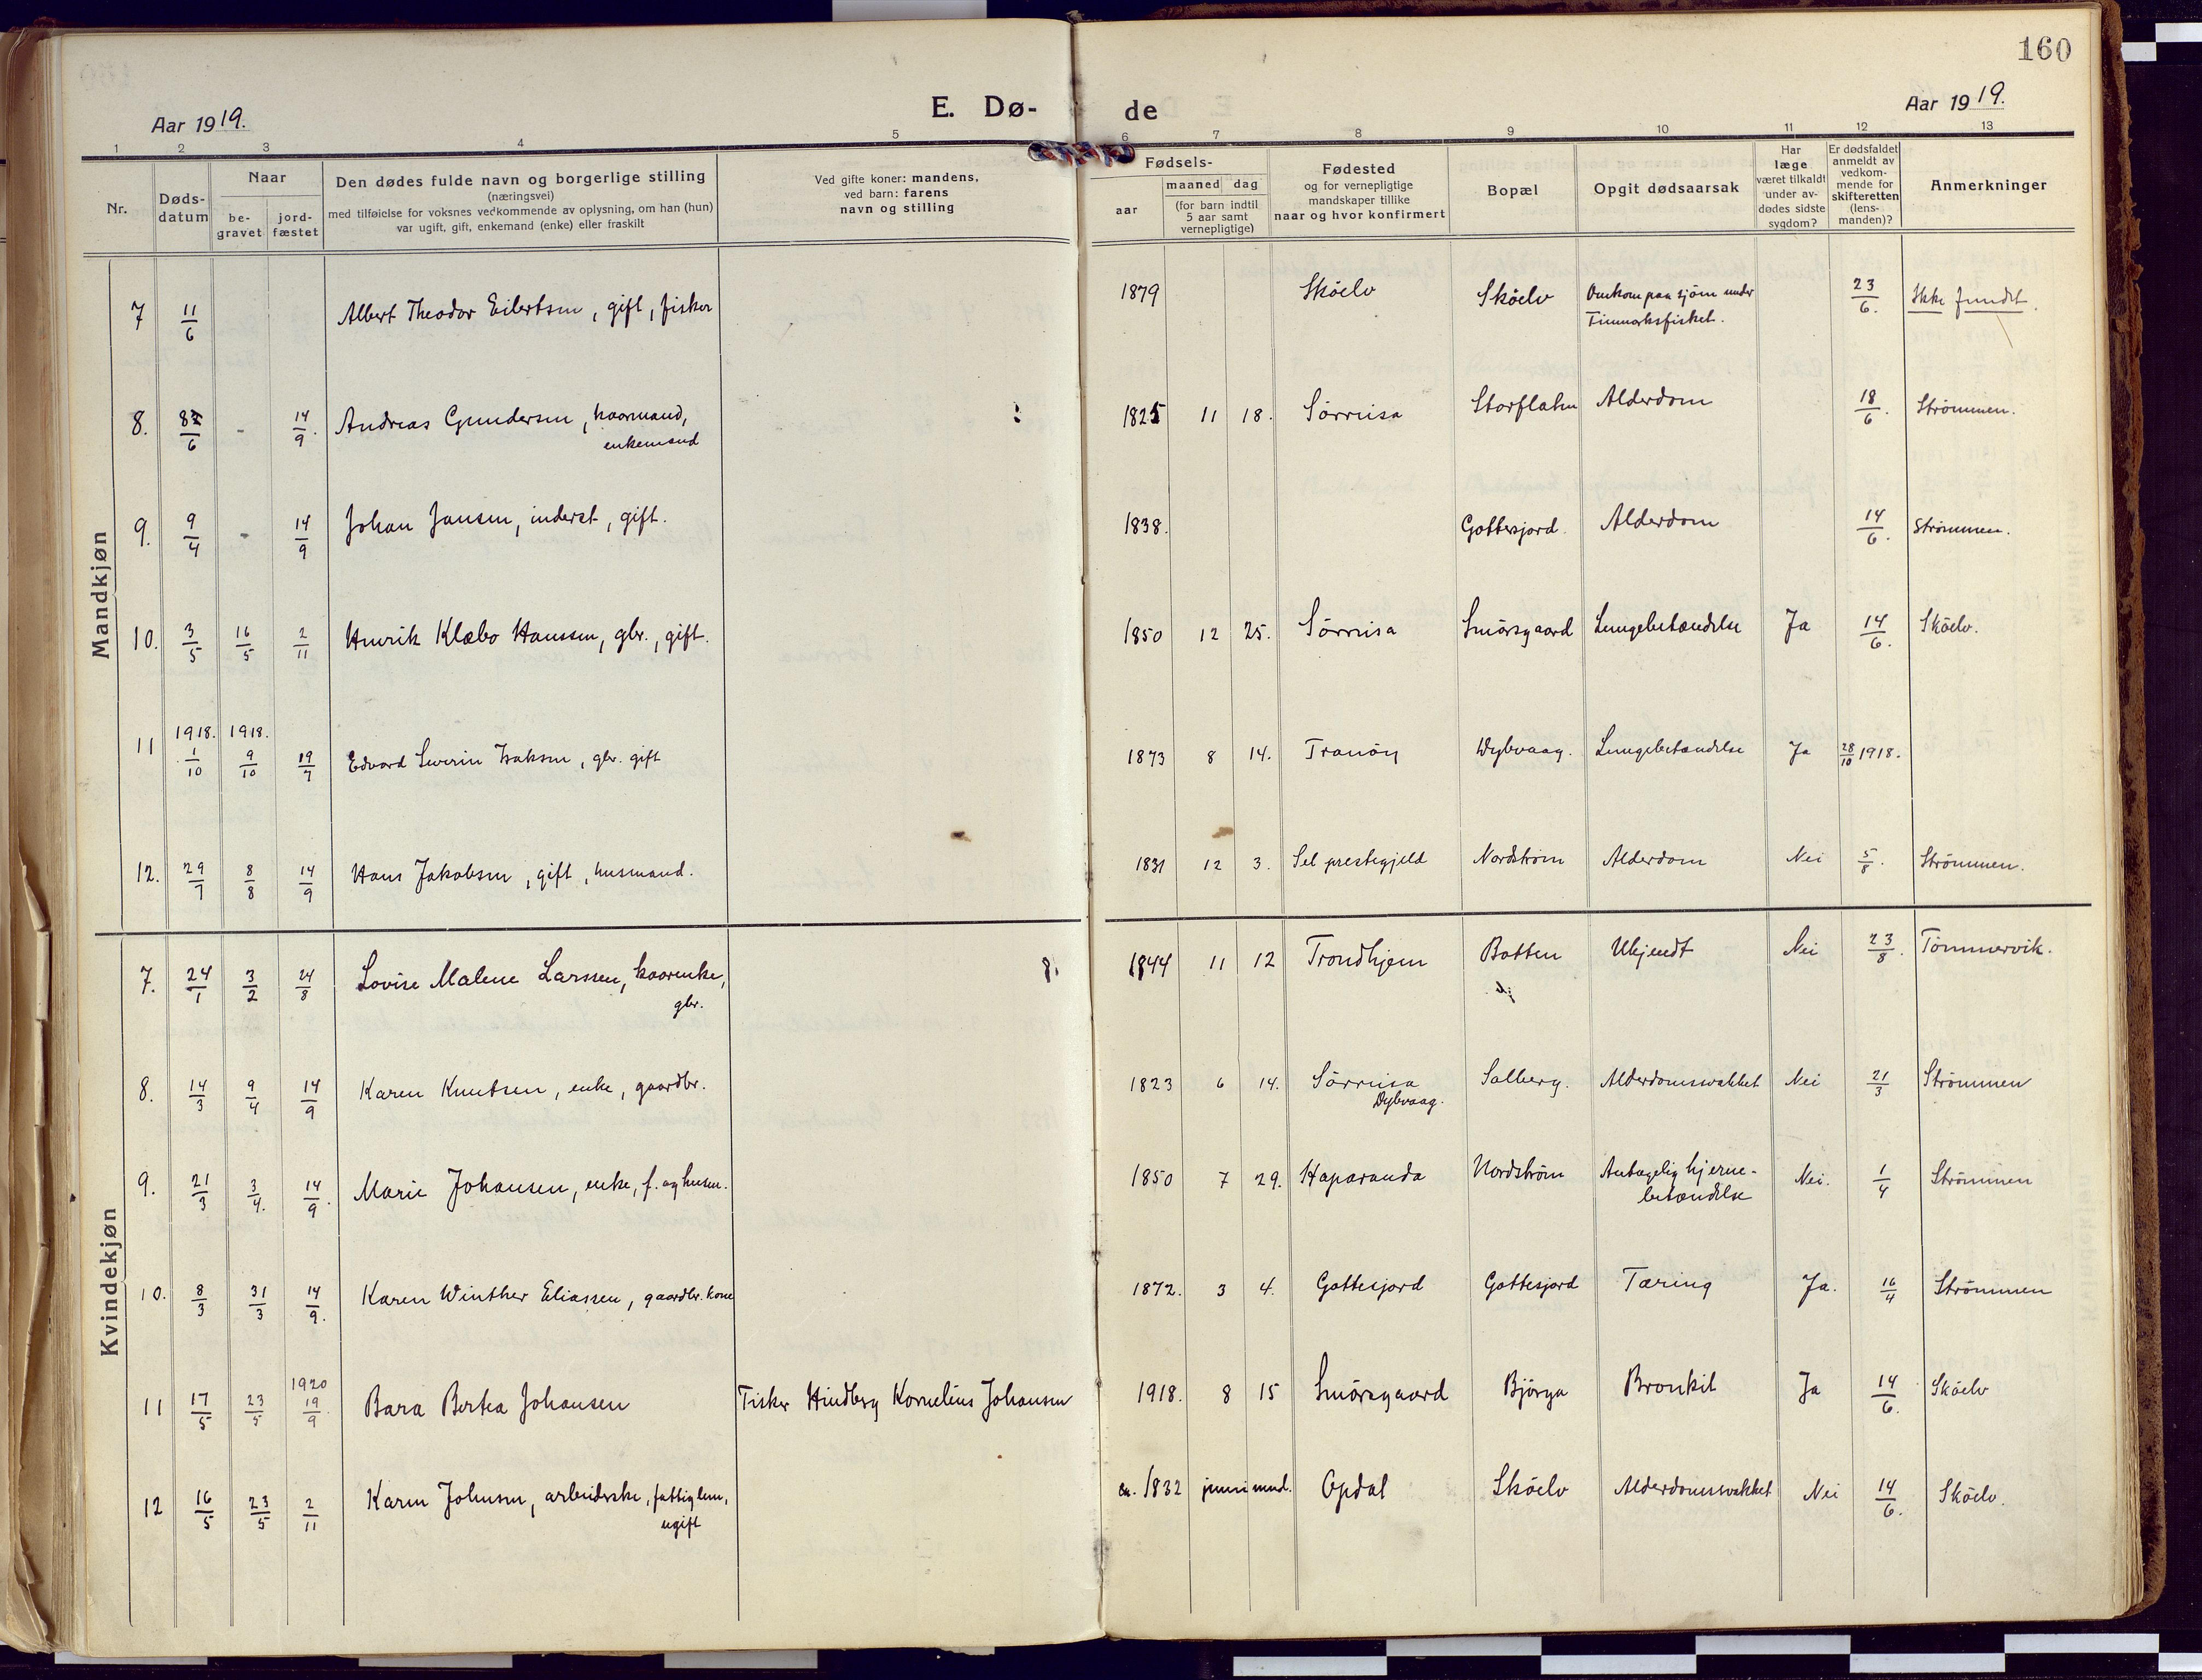 160
Aar 1919.
E. Dø-
de
Aar 1919.
1 2 3 4 5 6 7 8 9 10 11 12 13
Nr.
Døds-
datum
Naar
be-
gravet
jord-
fæstet
Den dødes fulde navn og borgerlige stilling
(næringsvei)
med tilføielse for voksnes vedkommende av oplysning, om han (hun)
var ugift, gift, enkemand (enke) eller fraskilt
Ved gifte koner: mandens,
ved barn: farens
navn og stilling
Fødsels-
aar
maaned dag
(for barn indtil
5 aar samt
vernepligtige)
Fødested
og for vernepligtige
mandskaper tillike
naar og hvor konfirmert
Bopæl
Opgit dødsaarsak
Har
læge
været tilkaldt
under av-
dødes sidste
sygdom?
Er dødsfaldet
anmeldt av
vedkom-
mende for
skifteretten
(lens-
manden)?
Anmerkninger
Mandkjøn
7 11/6 Albert Theodor Eilertsen, gift, fisker 1879 Sköelv Sköelv Omkom paa sjöen under 23/6. Ikke fundet.
Finmarksfisket.
8. 8/6 - 14/9. Andreas Gundersen, kaarmand, 1825 11 18. Sörreisa Storflaten Alderdom 18/6. Strömmen.
enkemand
9. 9/4 - 14/9 Johan Jansen, inderst, gift. 1838. Gottesjord. Alderdom 14/6. Strömmen.
10. 3/5 16/5 2/11 Henrik Klæbo Hanssen, gbr., gift. 1850 12 25. Sörreisa Smörsgaard Lungebetændelse Ja 14/6. Sköelv.
1918. 1918.
11 1/10 9/10 19/7 Edvard Severin Isaksen, gbr. gift 1873 8 14. Tranöy Dybvaag. Lungebetændelse Ja 28/10 1918.
12. 29/7 8/8 14/9 Hans Jakobsen, gift, husmand. 1831 12 3. Sel prestegjeld Nordström Alderdom Nei 5/8. Strömmen.
Kvindekjøn
7. 24/1 3/2 24/8 Lovise Malene Larssen, kaarenke, 1844 11 12 Trondhjem Botten Ukjendt Nei 23/8. Tömmervik.
gbr.
8. 14/3 9/4 14/9 Karen Knutsen, enke, gaardbr. 1823 6 14. Sörreisa Solberg. Alderdomssvakhet Nei 21/3 Strömmen
Dybvaag.
9. 21/3 3/4. 14/9. Marie Johansen, enke, f. og husm. 1850 7 29. Haparanda Nordström Antagelig hjerne- Nei. 1/4 Strömmen
betændelse
10. 8/3 31/3 14/9. Karen Winther Eliassen, gaardbr. kone 1872. 3 4. Gottesjord Gottesjord Tæring Ja. 16/4 Strömmen
1920
11 17/5 23/5 19/9. Bara Bertea Johansen Fisker Hindberg Kornelius Johansen 1918. 8 15 Smörsgaard Björga Bronkit Ja 14/6. Sköelv
12 16/5 23/5 2/11 Karen Johnsen, arbeiderske, fattiglem, ca. 1832 juni mnd. Opdal Sköelv Alderdomssvakhet Nei 14/6. Sköelv.
ugift